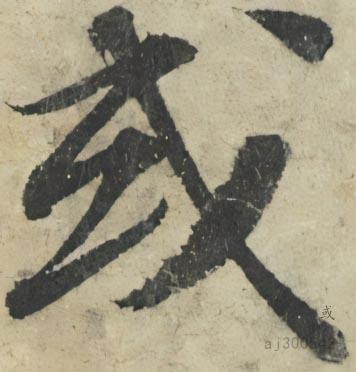 或
或
aj300542